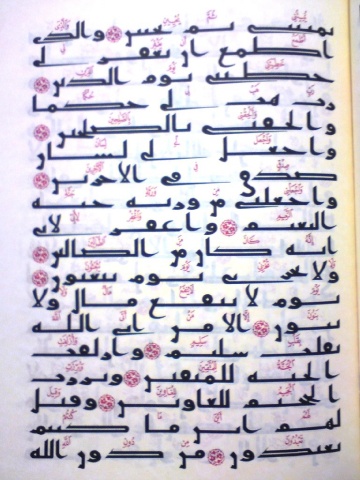 يميتني ثم يحيين ۝ والذي
اطمع ان يغفر لي
خطيتي يوم الدين ۝
رب هب لي حكما
والحقني بالصلحين ۝
واجعل لي لسان
صدق في الاخرين ۝
واجعلني من ورثة جنة
النعيم ۝ واغفر لابي
انه كان من الضالين ۝
ولا تخزني يوم يبعثون ۝
يوم لا ينفع مال ولا
بنون ۝ الا من اتى الله
بقلب سليم ۝ وازلفت
الجنة للمتقين ۝ وبرزت
الجحيم للغاوين ۝ وقيل
لهم اين ما كنتم
تعبدون ۝ من دون الله